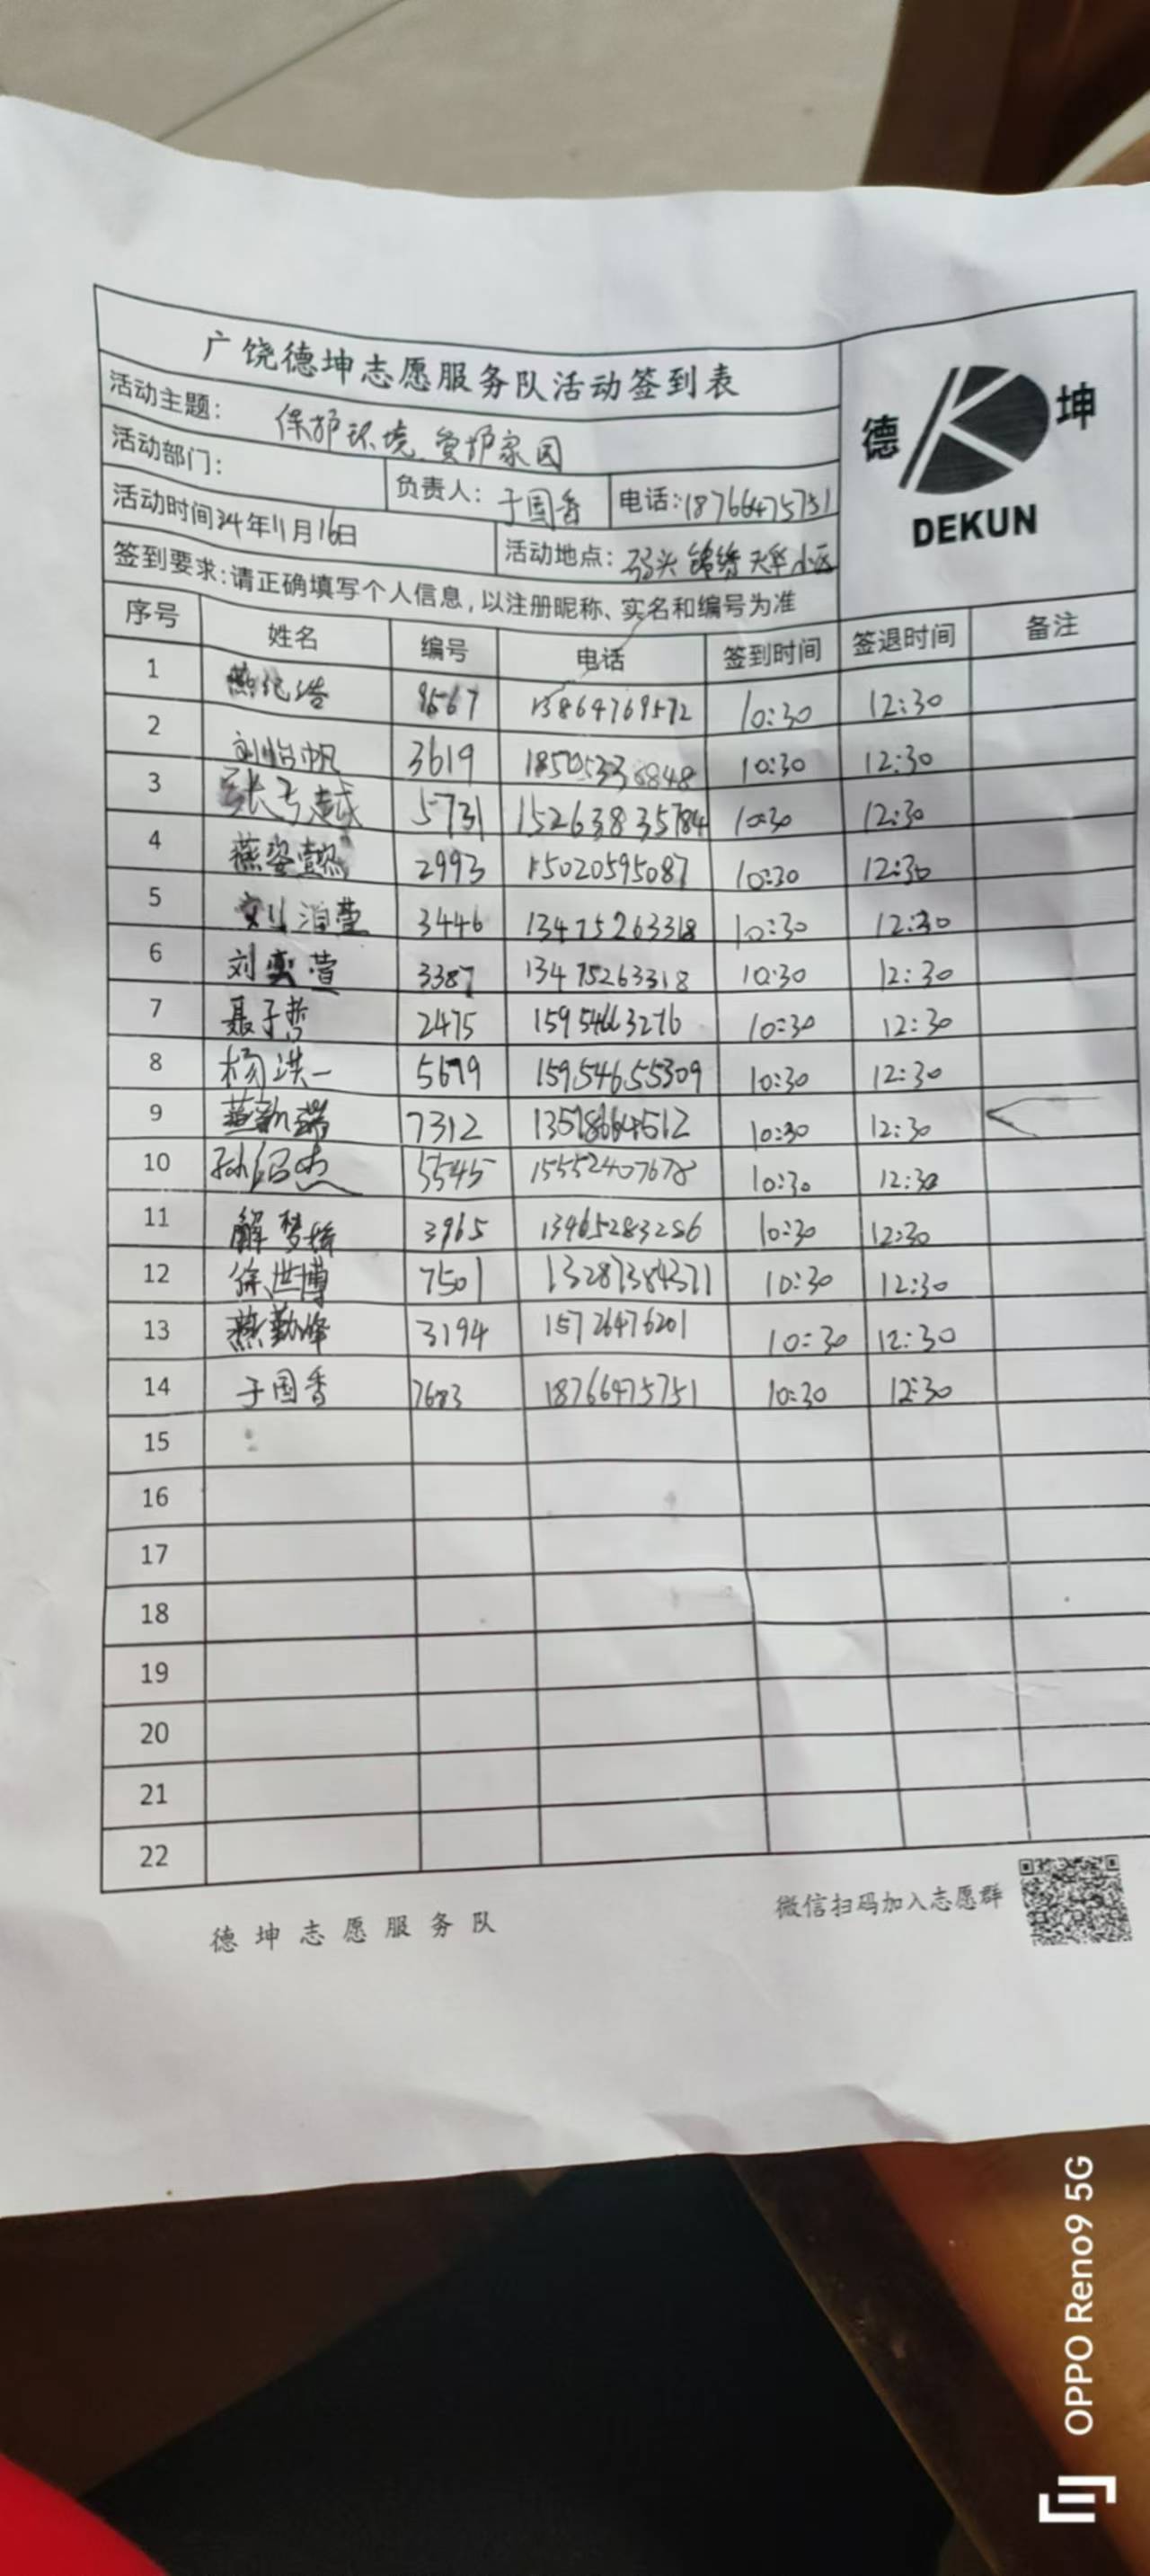 广饶德坤志愿服务队活动签到表
德 坤
DEKUN
活动主题: 保护环境 爱护家园
活动部门: 负责人: 于国香 电话: 18766475751
活动时间 24年11月16日 活动地点: 码头锦绣天华小区
签到要求:请正确填写个人信息,以注册昵称、实名和编号为准
序号 姓名 编号 电话 签到时间 签退时间 备注
1 8567 13864769572 10:30 12:30
2 刘怡帆 3619 10:30 12:30
3 5731 15263835784 10:30 12:30
4 2993 15020595087 10:30 12:30
5 3446 13475263318 10:30 12:30
6 刘奕萱 3387 13475263318 10:30 12:30
7 聂子哲 2475 15954663276 10:30 12:30
8 杨洪一 5679 15954655309 10:30 12:30
9 7312 10:30 12:30
10 孙绍杰 5545 15552407678 10:30 12:30
11 解梦 3965 13465283286 10:30 12:30
12 徐世博 7501 13287384371 10:30 12:30
13 燕勤峰 3194 15726476201 10:30 12:30
14 于国香 7683 18766475751 10:30 12:30
15
16
17
18
19
20
21
22
德坤志愿服务队 微信扫码加入志愿群
OPPO Reno9 5G